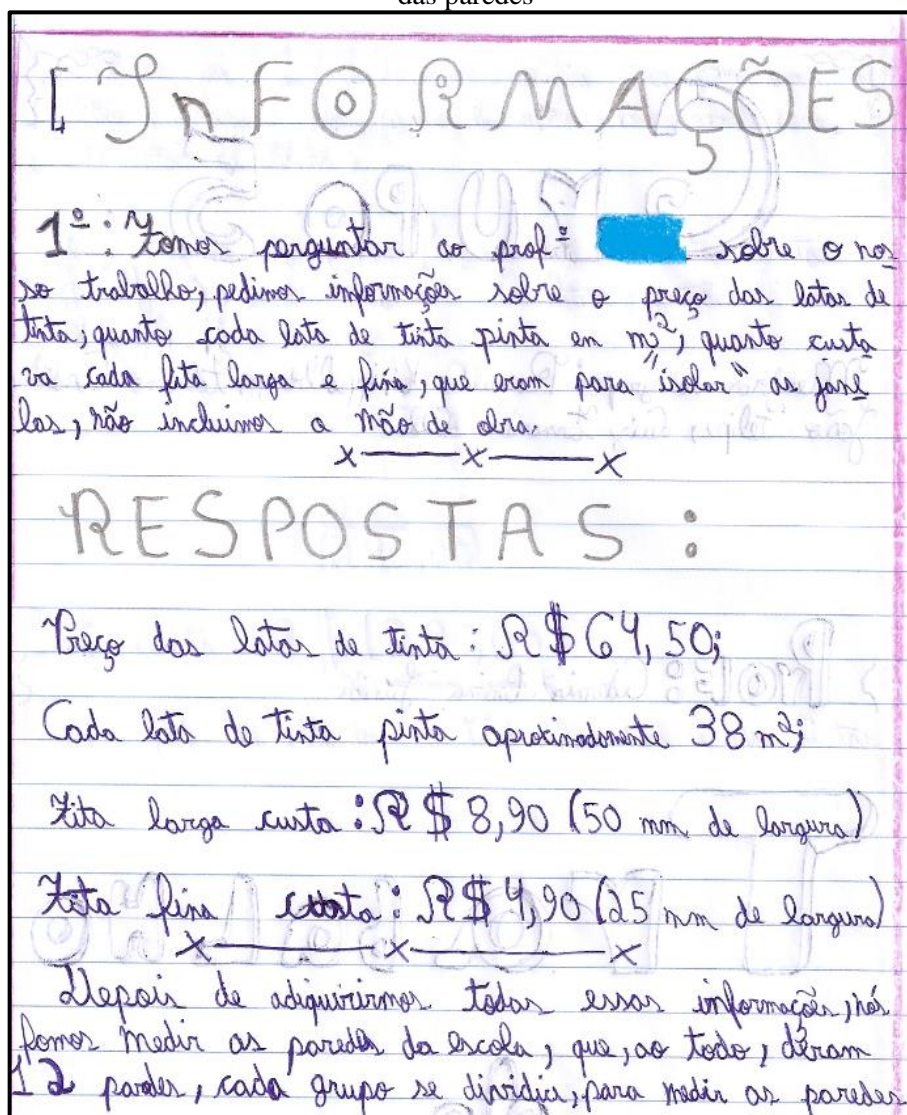 das paredes
INFORMAÇÕES
1º: Fomos perguntar ao profº sobre o nos
so trabalho, pedimos informações sobre o preço das latas de
tinta, quanto cada lata de tinta pinta em m², quanto custa
va cada fita larga e fina, que eram para "isolar" as jane
las, não incluimos a mão de obra.
x x x
RESPOSTAS:
Preço das latas de tinta: R$ 64,50;
Cada lata de tinta pinta aproximadamente 38 m²;
Fita larga custa: R$ 8,90 (50 mm de largura)
Fita fina custa: R$ 4,90 (25 mm de largura)
x x x
Depois de adiquirirmos todas essas informações, nós
fomos medir as paredes da escola, que, ao todo, déram
12 pardes, cada grupo se dividiu, para medir as paredes